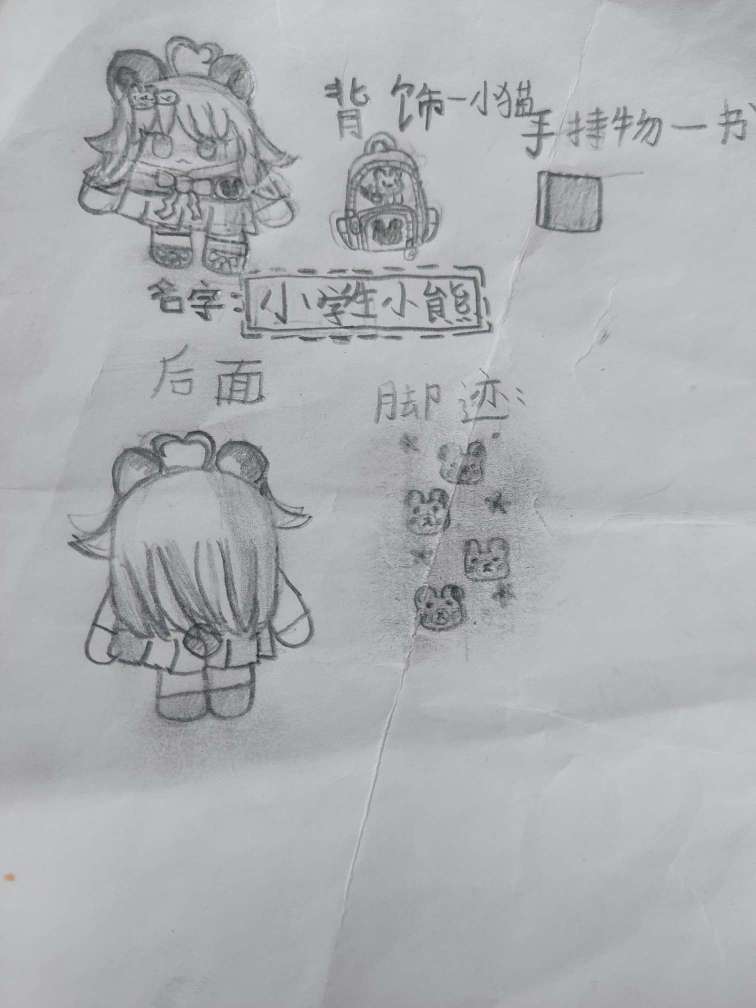 背饰一小猫
手持物一书
名字:小学生小熊
后面
脚迹: